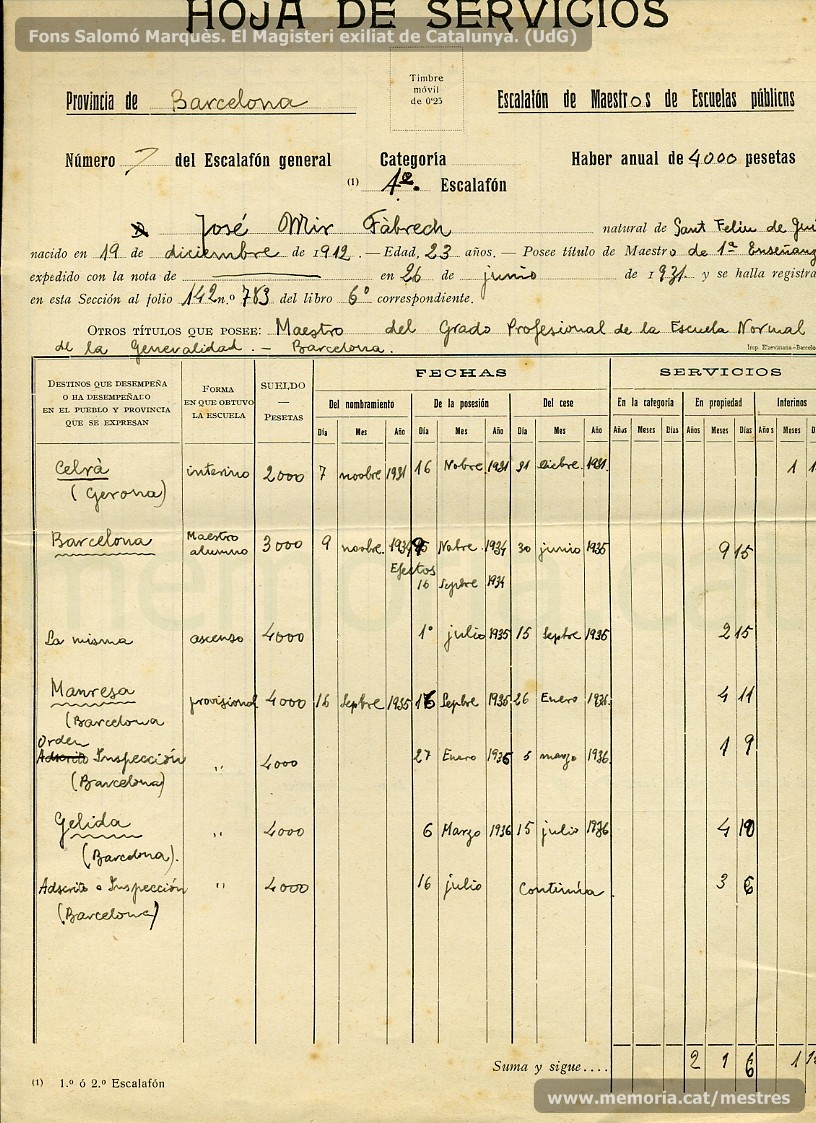 HOJA DE SERVICIOS
Fons Salomó Marquès. El Magisteri exiliat de Catalunya. (UdG)
Timbre
móvil
de 0'25
Provincia de Barcelona
Escalafón de Maestros de Escuelas públicas
Número 7 del Escalafón general Categoría Haber anual de 4000 pesetas
(1) 1º. Escalafón
D José Mir Fàbrech natural de Sant Feliu de Gui
nacido en 19 de diciembre de 1912.—Edad, 23 años.—Posee título de Maestro de 1ª Enseñanz
expedido con la nota de en 26 de junio de 1931 y se halla registra
en esta Sección al folio 142 n.º 783 del libro 6º correspondiente.
OTROS TÍTULOS QUE POSEE: Maestro del Grado Profesional de la Escuela Normal
de la Generalidad.— Barcelona.
DESTINOS QUE DESEMPEÑA
O HA DESEMPEÑADO
EN EL PUEBLO Y PROVINCIA
QUE SE EXPRESAN
FORMA
EN QUE OBTUVO
LA ESCUELA
SUELDO
—
PESETAS
FECHAS
SERVICIOS
Del nombramiento De la posesión Del cese En la categoría En propiedad Interinos
Día Mes Año Día Mes Año Día Mes Año Años Meses Días Años Meses Días Años Meses D
Celrà interino 2000 7 novbre 1931 16 Nobre. 1931 31 dicbre. 1931. 1 1
(Gerona)
Barcelona Maestro alumno 3000 9 novbre. 1934 Nobre. 1934 30 junio 1935 9 15
Efectos
16 Sepbre 1934
La misma ascenso 4000 1º julio 1935 15 Sepbre 1935 2 15
Manresa provisional 4000 16 Sepbre 1935 16 Sepbre 1935 26 Enero 1936. 4 11
(Barcelona
Orden
Adscrito Inspección " 4000 27 Enero 1936 5 marzo 1936. 1 9
(Barcelona)
Gelida " 4000 6 Marzo 1936 15 julio 1936 4 10
(Barcelona).
Adscrito a Inspección " 4000 16 julio Continúa. 3 6
(Barcelona)
Suma y sigue.... 2 1 6 1 1
(1) 1.º ó 2.º Escalafón
www.memoria.cat/mestres